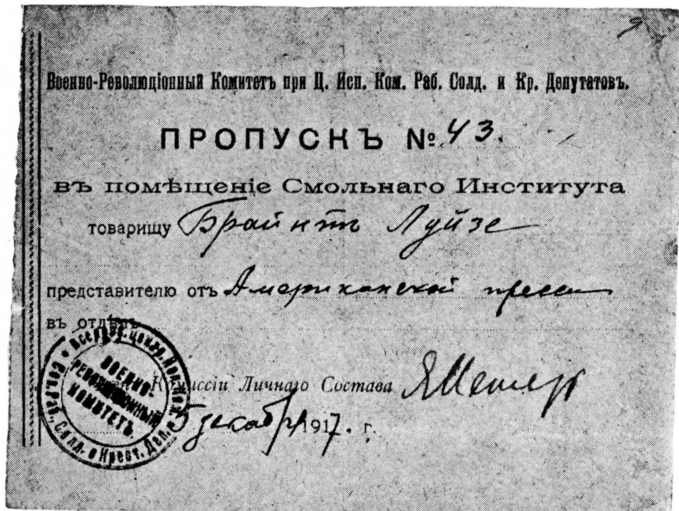 Военно-Революціонный Комитетъ при Ц. Исп. Ком. Раб. Солд. и Кр. Депутатовъ.
ПРОПУСКЪ № 43.
въ помѣщеніе Смольнаго Института
товарищу Брайнтъ Луйзе
представителю отъ Американской прессы
въ отдѣлъ
Комиссіи Личнаго Состава
5 декабря 1917. г.
ВОЕННО-
РЕВОЛЮЦІОННЫЙ
КОМИТЕТЪ.